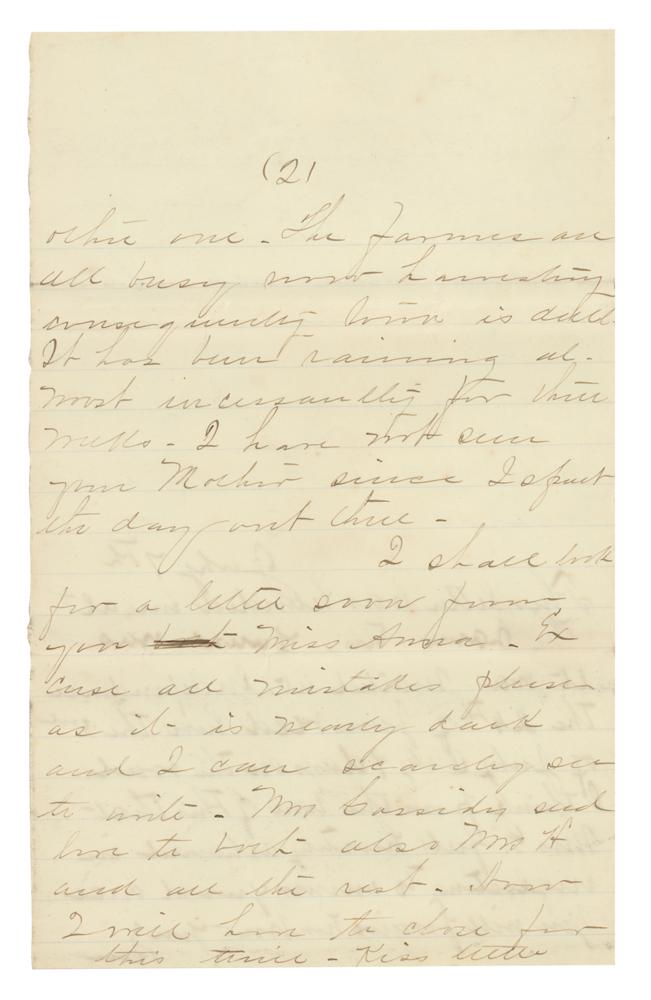 (2)
other one - The farmers are
all busy now harvesting
consequently town is dull.
It has been raining al-
most incessantly for three
weeks - I have not seen
your Mother since I spent
the day out there -
I shall look
for a letter soon from
you Miss Anna - Ex
cuse all mistakes please
as it is nearly dark
and I can scarcely see
to write - Mrs Cassidy send
love to both also Mrs H
and all the rest - Now
I will have to close for
this time - Kiss little